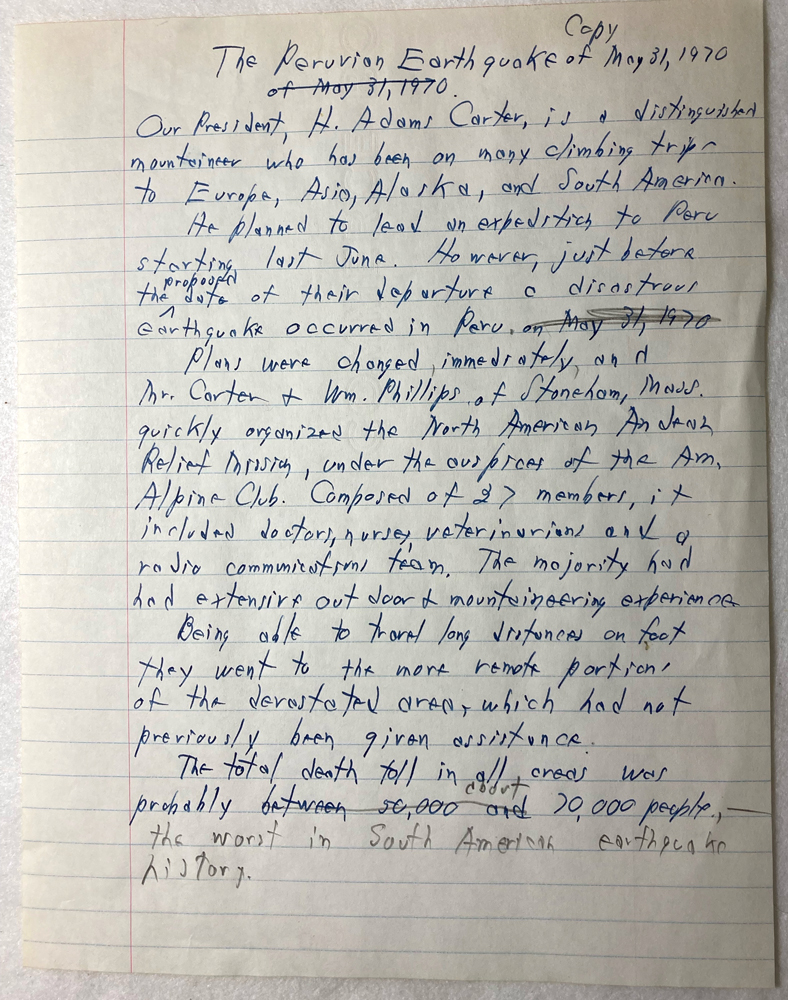 Copy
The Peruvian Earthquake of May 31, 1970
of May 31, 1970.
Our President, H. Adams Carter, is a distinguished
mountaineer who has been on many climbing trips
to Europe, Asia, Alaska, and South America.
He planned to lead an expedition to Peru
starting last June. However, just before
proposed
the date of their departure a disastrous
earthquake occurred in Peru. on May 31, 1970
Plans were changed immediately, and
Mr. Carter & Wm. Phillips, of Stoneham, Mass.
quickly organized the North American Andean
Relief Mission, under the auspices of the Am.
Alpine Club. Composed of 27 members, it
included doctors, nurses, veterinarians and a
radio communications team. The majority had
had extensive outdoor & mountaineering experience
Being able to travel long distances on foot
they went to the more remote portions
of the devastated area, which had not
previously been given assistance.
The total death toll in all areas was
about
probably between 50,000 and 70,000 people, —
the worst in South American earthquake
history.